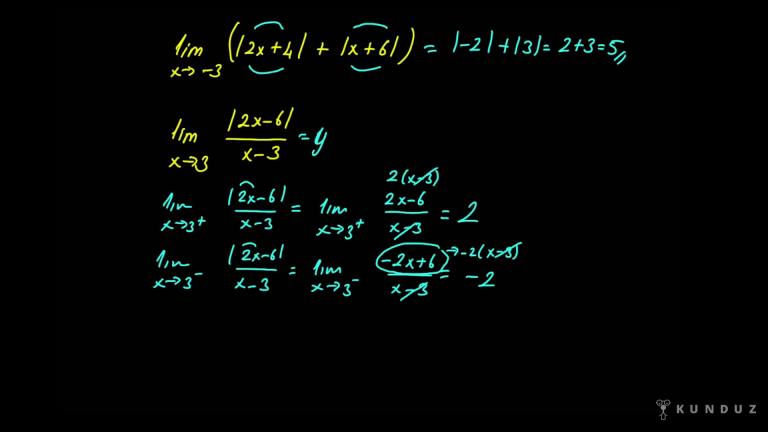 lim x→-3 (|2x+4| + |x+6|) = |-2|+|3| = 2+3=5,,
lim x→3 |2x-6| / x-3 = y
lim x→3⁺ |2x-6| / x-3 = lim x→3⁺ 2(x-3) 2x-6 / x-3 = 2
lim x→3⁻ |2x-6| / x-3 = lim x→3⁻ -2x+6 / x-3 → -2(x-3) = -2
KUNDUZ